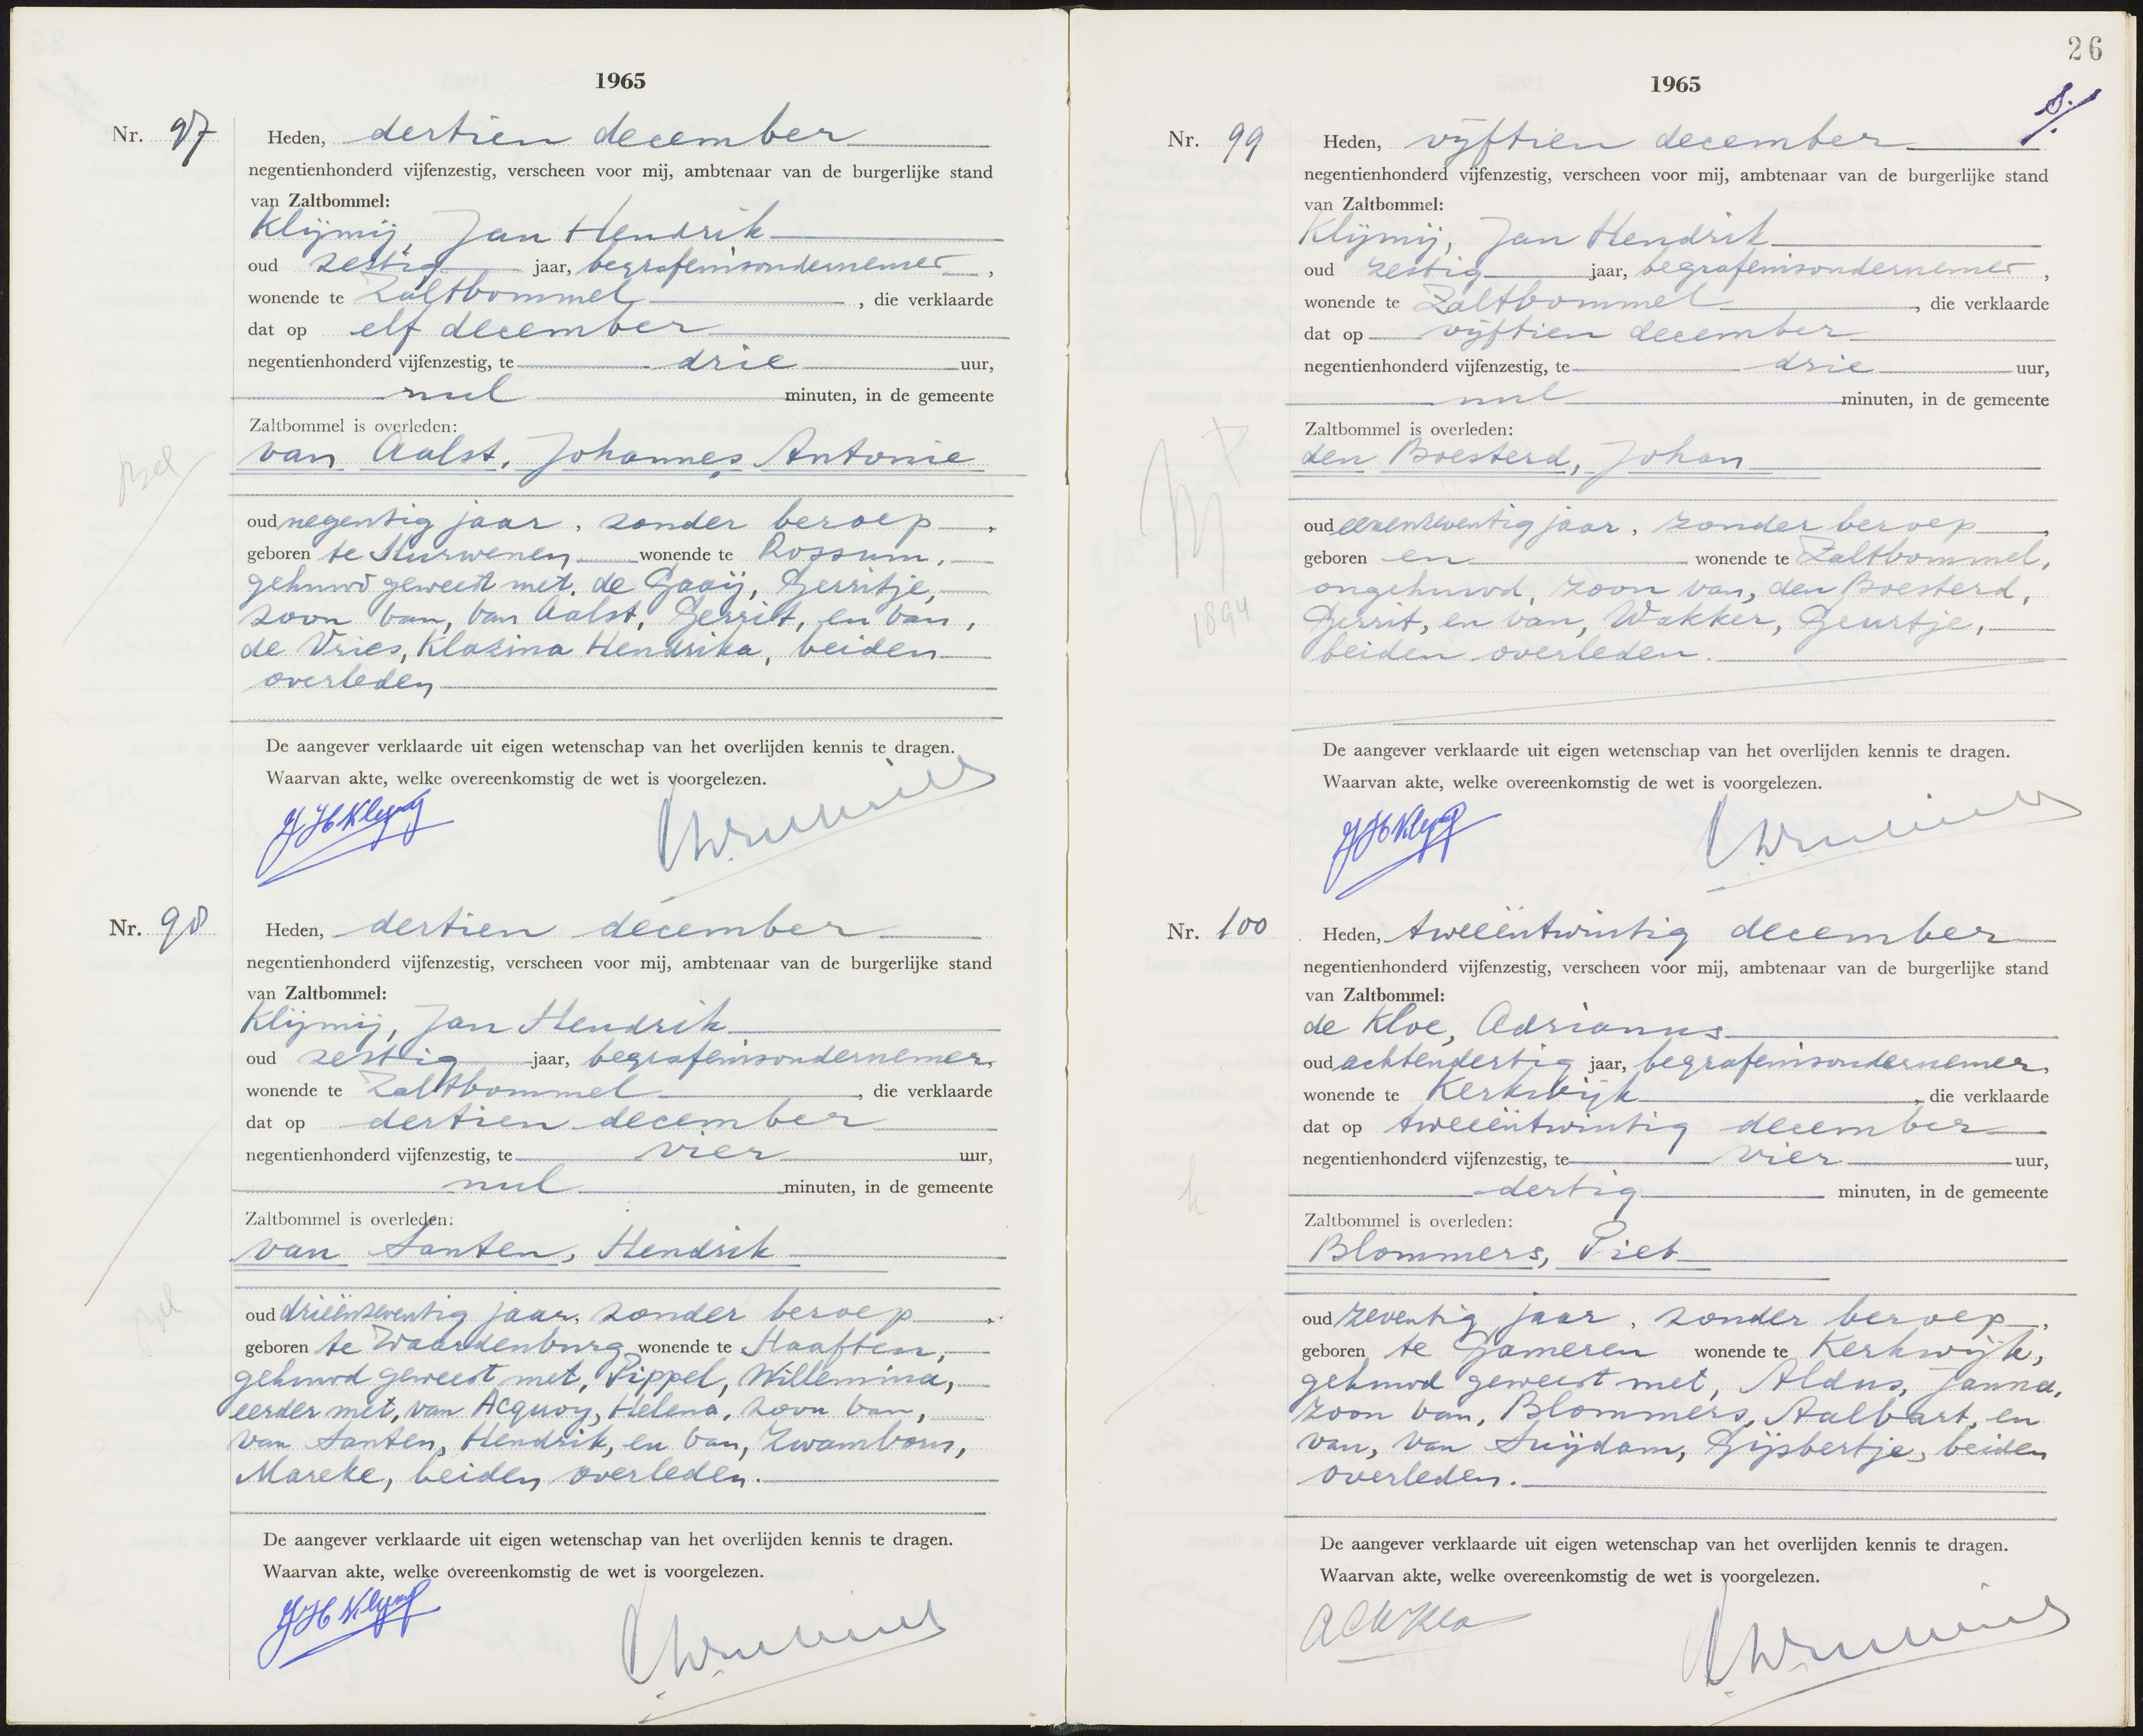 1965
Nr. 97
Heden, dertien december
negentienhonderd vijfenzestig, verscheen voor mij, ambtenaar van de burgerlijke stand
van Zaltbommel:
Klijmij, Jan Hendrik
oud zestig jaar, begrafenisondernemer,
wonende te Zaltbommel, die verklaarde
dat op elf december
negentienhonderd vijfenzestig, te drie uur,
nul minuten, in de gemeente
Zaltbommel is overleden:
van Aalst, Johannes Antonie
oud negentig jaar, zonder beroep,
geboren te Hurwenen wonende te Rossum,
gehuwd geweest met, de Gaaij, Gerritje,
zoon van, van Aalst, Gerrit, en van,
de Vries, Klazina Hendrika, beiden
overleden
De aangever verklaarde uit eigen wetenschap van het overlijden kennis te dragen.
Waarvan akte, welke overeenkomstig de wet is voorgelezen.
Nr. 98
Heden, dertien december
negentienhonderd vijfenzestig, verscheen voor mij, ambtenaar van de burgerlijke stand
van Zaltbommel:
Klijmij, Jan Hendrik
oud zestig jaar, begrafenisondernemer,
wonende te Zaltbommel, die verklaarde
dat op dertien december
negentienhonderd vijfenzestig, te vier uur,
nul minuten, in de gemeente
Zaltbommel is overleden:
van Santen, Hendrik
oud drieënzeventig jaar, zonder beroep,
geboren te Waardenburg wonende te Haaften,
gehuwd geweest met, Pippel, Willemina,
eerder met, van Acquoy, Helena, zoon van,
van Santen, Hendrik, en van, Zwamborn,
Mareke, beiden overleden.
De aangever verklaarde uit eigen wetenschap van het overlijden kennis te dragen.
Waarvan akte, welke overeenkomstig de wet is voorgelezen.
26
1965
Nr. 99
Heden, vijftien december
negentienhonderd vijfenzestig, verscheen voor mij, ambtenaar van de burgerlijke stand
van Zaltbommel:
Klijmij, Jan Hendrik
oud zestig jaar, begrafenisondernemer,
wonende te Zaltbommel, die verklaarde
dat op vijftien december
negentienhonderd vijfenzestig, te drie uur,
nul minuten, in de gemeente
Zaltbommel is overleden:
den Boesterd, Johan
oud eenenzeventig jaar, zonder beroep,
geboren en wonende te Zaltbommel,
ongehuwd, zoon van, den Boesterd,
1894
Gerrit, en van, Wakker, Geurtje,
beiden overleden.
De aangever verklaarde uit eigen wetenschap van het overlijden kennis te dragen.
Waarvan akte, welke overeenkomstig de wet is voorgelezen.
Nr. 100
Heden, tweeëntwintig december
negentienhonderd vijfenzestig, verscheen voor mij, ambtenaar van de burgerlijke stand
van Zaltbommel:
de Kloe, Adrianus
oud achtendertig jaar, begrafenisondernemer,
wonende te Kerkwijk, die verklaarde
dat op tweeëntwintig december
negentienhonderd vijfenzestig, te vier uur,
dertig minuten, in de gemeente
Zaltbommel is overleden:
Blommers, Piet
oud zeventig jaar, zonder beroep,
geboren te Gameren wonende te Kerkwijk,
gehuwd geweest met, Aldus, Janna,
zoon van, Blommers, Aalbart, en
van, van Suijdam, Gijsbertje, beiden
overleden.
De aangever verklaarde uit eigen wetenschap van het overlijden kennis te dragen.
Waarvan akte, welke overeenkomstig de wet is voorgelezen.